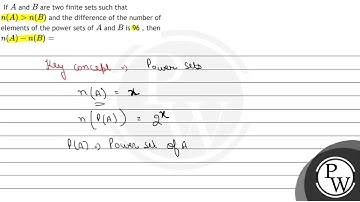 If A and B are two finite sets such that
n(A) > n(B) and the difference of the number of
elements of the power sets of A and B is 96 , then
n(A) − n(B) =
Key concept ⇒ Power sets
n(A) = x
n(P(A)) = 2^x
P(A) ⇒ Power set of A
PW